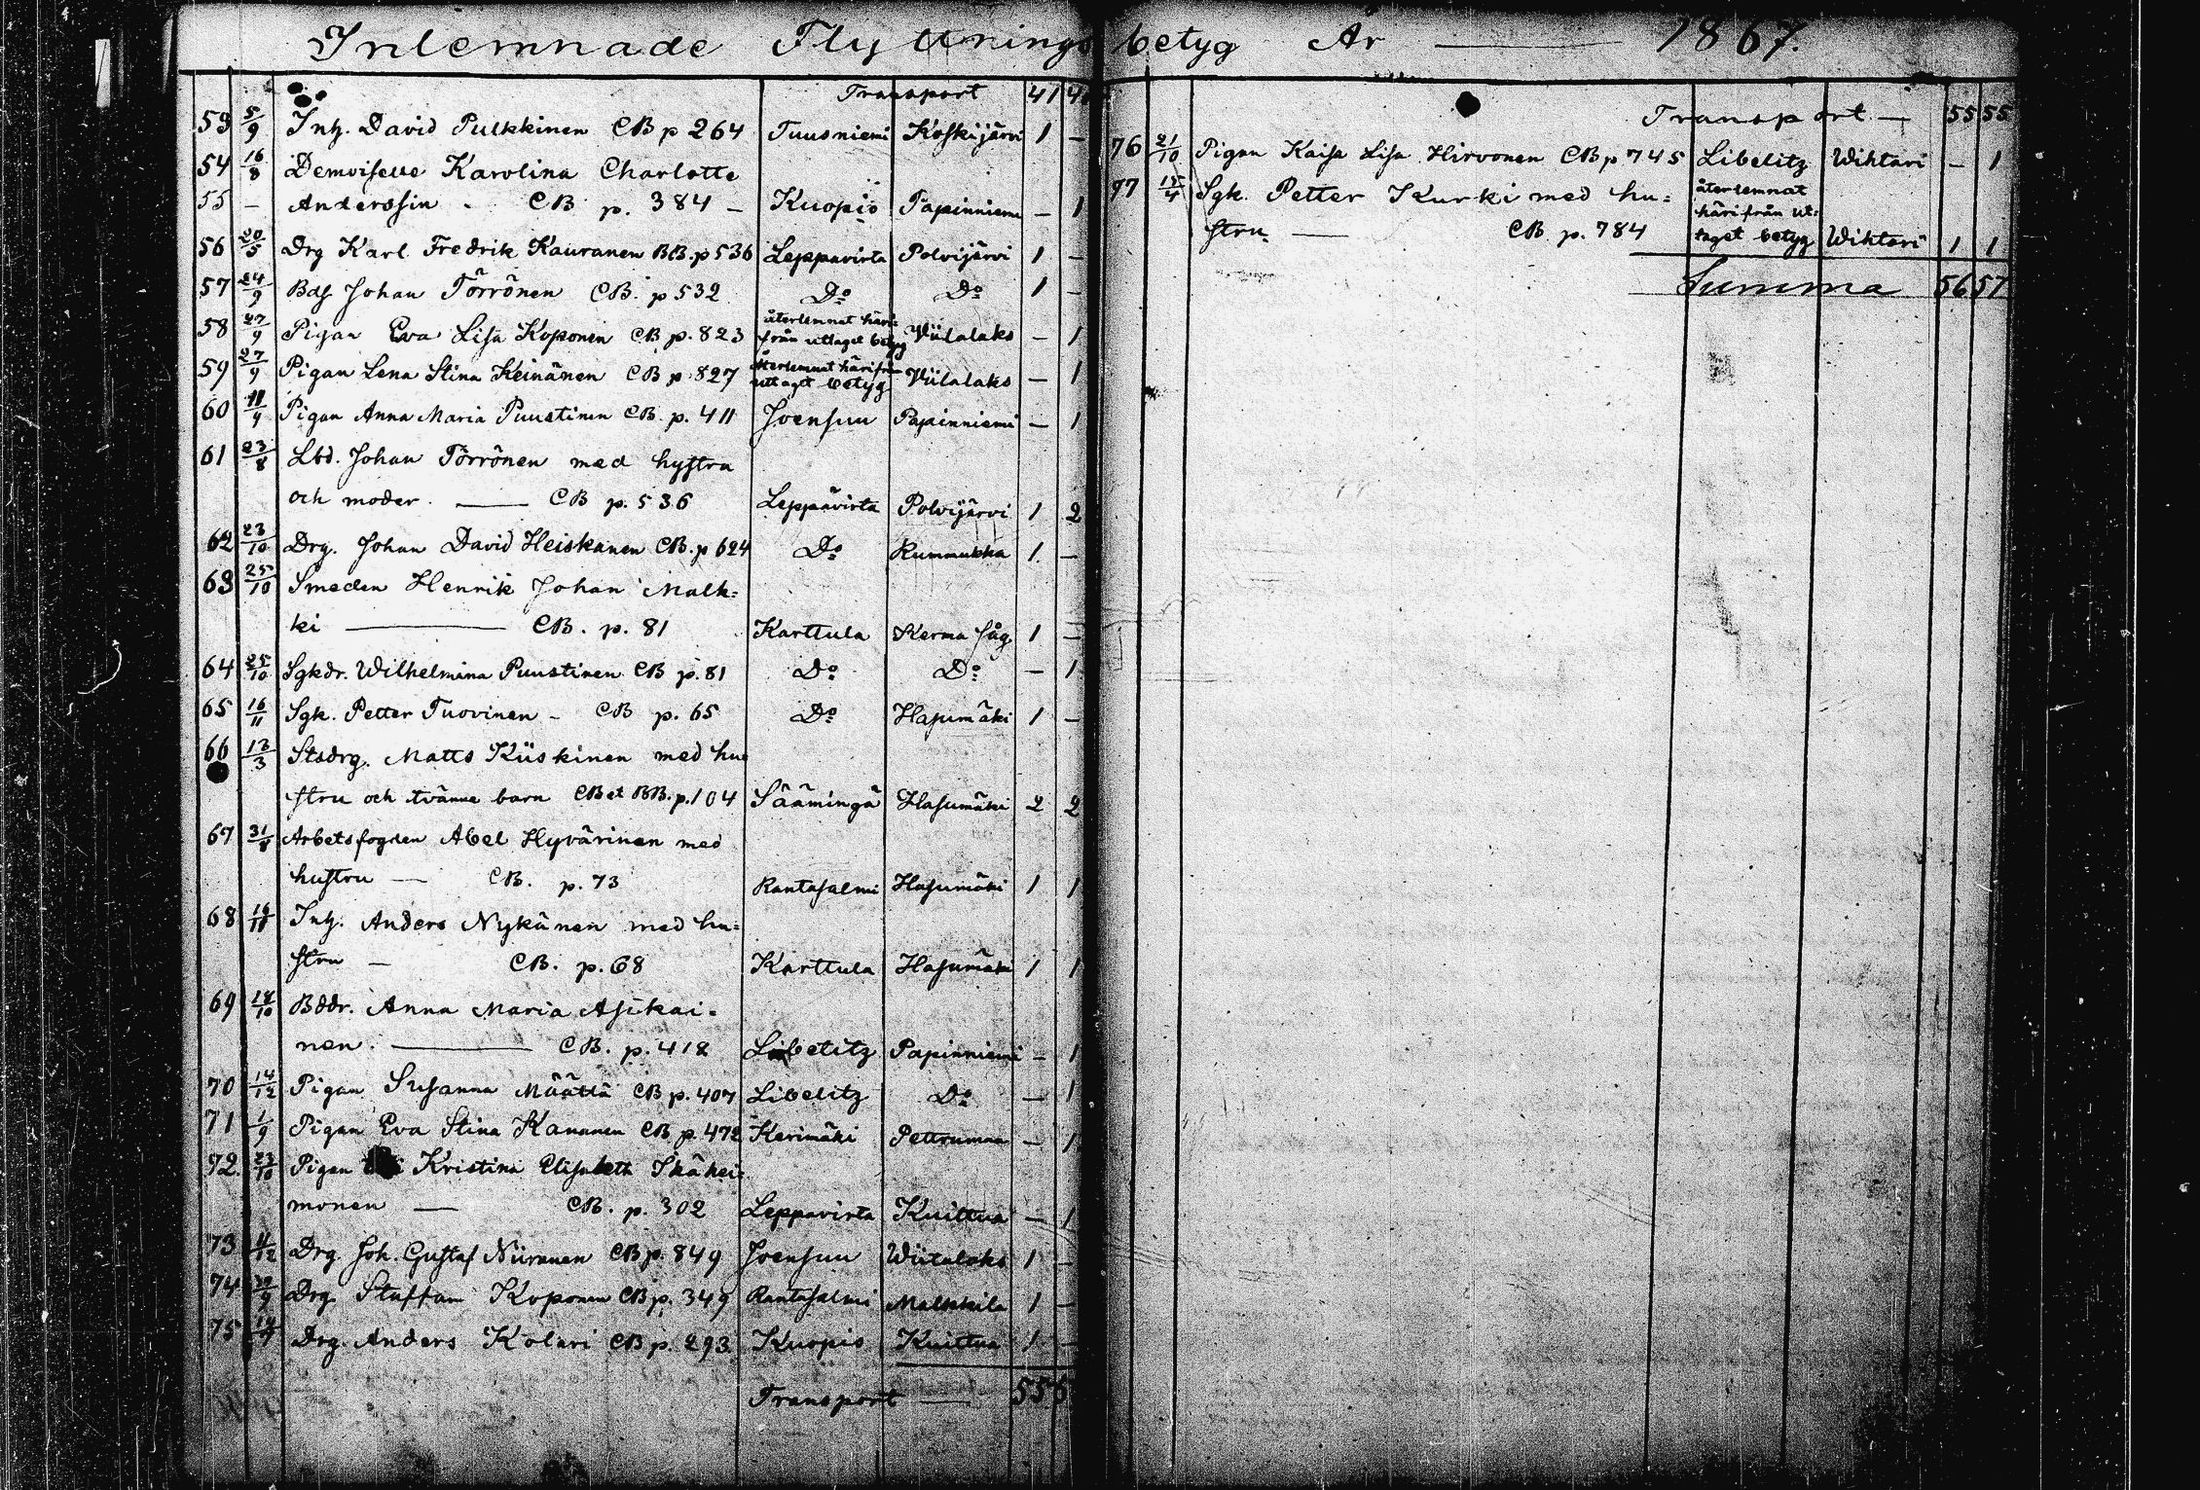 Inlemnade Flyttningsbetyg År — 1867.
Transport 41 4
53 5/9 Inh. David Pulkkinen CB p 264 Tuusniemi Koskijärvi 1 —
54 16/8 Demoiselle Karolina Charlotte
55 — Anderssin - CB p. 384 — Kuopio Papinniemi — 1
56 20/5 Drg Karl Fredrik Kauranen BB. p 536 Leppävirta Polvijärvi 1 —
57 24/9 Bds Johan Törrönen CB. p 532 Do Do 1 —
58 27/9 Pigan Eva Lisa Koponen CB p. 823 återlemnat häri-från uttaget betyg Viilalaks — 1
59 27/9 Pigan Lena Stina Keinänen CB p. 827 återlemnat härifrån uttaget betyg Viilalaks — 1
60 11/9 Pigan Anna Maria Puustinen CB. p. 411 Joensuu Papinniemi — 1
61 23/8 Lbd. Johan Törrönen med hystru
och moder. — CB p. 536 Leppävirta Polvijärvi 1 2
62 23/10 Drg. Johan David Heiskanen CB. p 624 Do Rummukka 1. —
63 25/10 Smeden Henrik Johan Malk=
ki — CB. p. 81 Karttula Kerma såg 1 —
64 25/10 Sgkdr. Wilhelmina Puustinen CB p. 81 Do Do — 1
65 16/11 Sgk. Petter Tuovinen - CB p. 65 Do Hasumäki 1 —
66 12/3 Stsdrg. Matts Kiiskinen med hu=
stru och tvänne barn CB et BB. p. 104 Säämingä Hasumäki 2 2
67 31/8 Arbetsfogden Abel Hyvärinen med
hustru — CB. p. 73 Rantasalmi Hasumäki 1 1
68 16/11 Inh. Anders Nykänen med hu=
stru — CB. p. 68 Karttula Hasumäki 1 1
69 18/10 Bddr. Anna Maria Asikai=
nen. — CB. p. 418 Libelitz Papinniemi — 1
70 14/12 Pigan Susanna Määttä CB p. 407 Libelitz Do — 1
71 1/9 Pigan Eva Stina Kananen CB p. 472 Kerimäki Petrumaa — 1
72. 23/10 Pigan Kristina Elisabeth Ikähei=
monen — CB. p. 302 Leppävirta Kuittua — 1
73 /12 Drg. Joh. Gustaf Niiranen CB p. 849 Joensuu Wiitalaks 1 —
74 29/9 Drg. Staffan Koponen CB p. 349 Rantasalmi Malkkila 1 —
75 Drg. Anders Kolari CB p. 293 Kuopio Kuittua 1 —
Transport — 55 5
Transport — 55 55
76 21/10 Pigan Kaisa Lisa Hirvonen CB p 745 Libelitz Wihtari — 1
77 15/4 Sgk. Petter Kurki med hu= återlemnat
härifrån ut=
stru. — CB. p. 784 taget betyg Wihtari 1 1
Summa 56 57